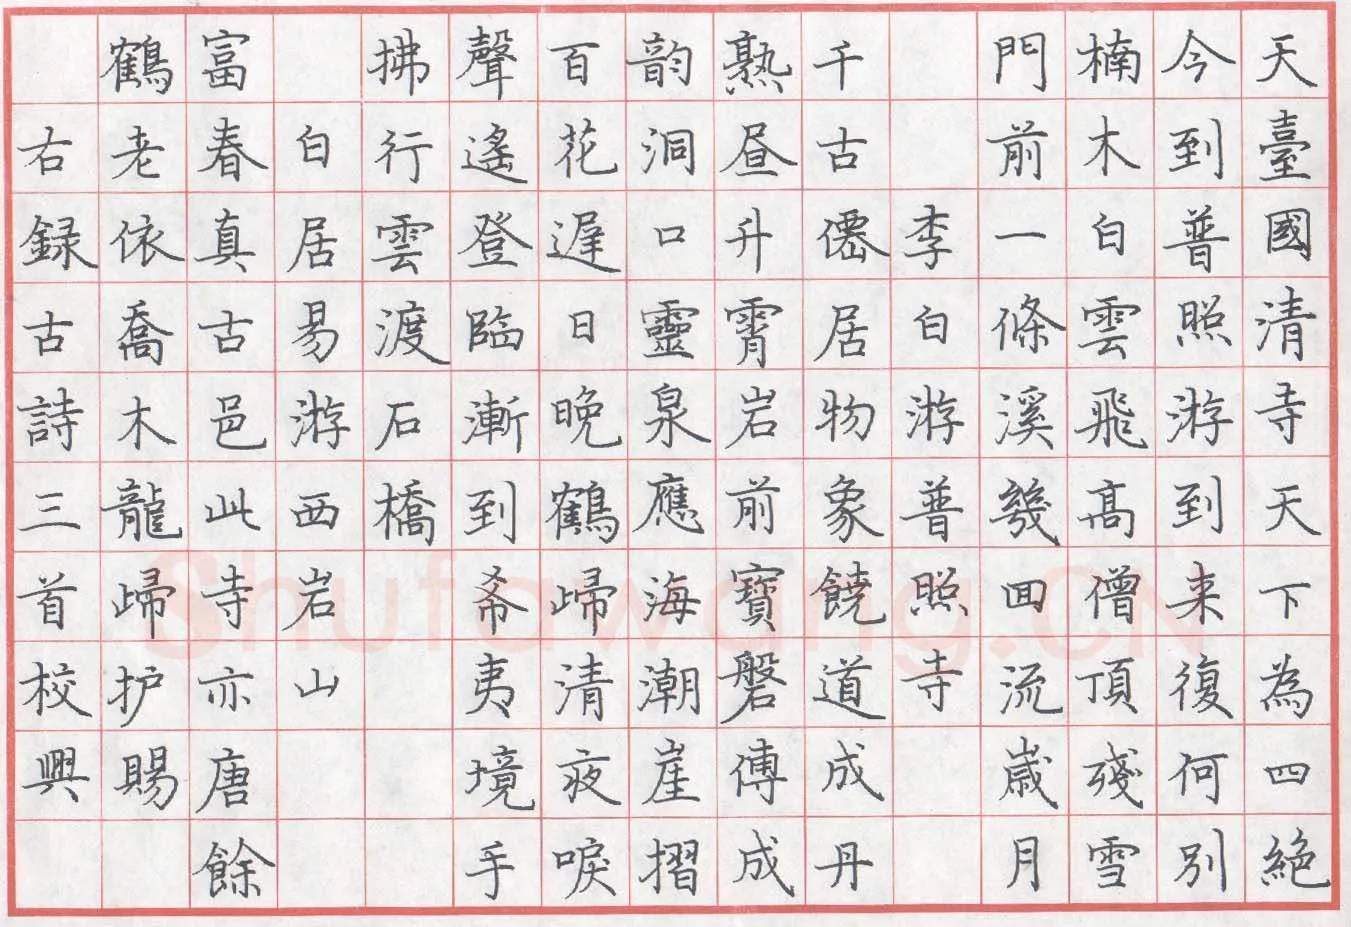 天臺國清寺天下為四絕
今到普照游到来復何別
楠木白雲飛高僧頂殘雪
門前一條溪幾囬流歲月
李白游普照寺
千古僊居物象饒道成丹
熟昼升霄岩前寶磐傳成
韵洞口靈泉應海潮崖摺
百花遲日晚鶴歸清夜唳
聲遙登臨漸到希夷境手
拂行雲渡石橋
白居易游西岩山
富春真古邑此寺亦唐餘
鶴老依喬木龍歸护賜
右録古詩三首校興
Shufawang.CN